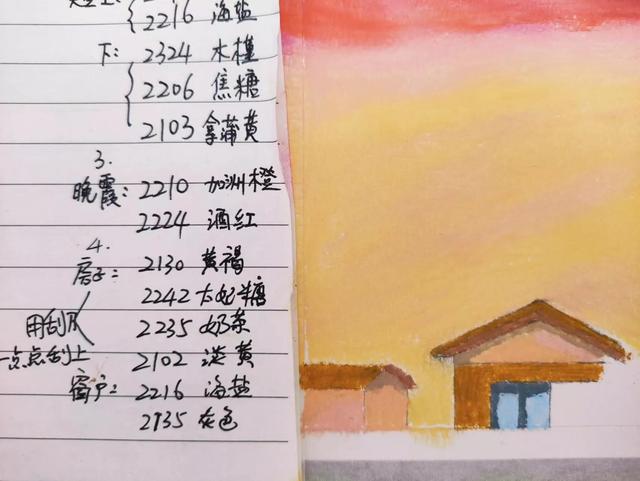 2216 海盐
下: 2324 木槿
2206 焦糖
2103 拿蒲黄
3.
晚霞: 2210 加洲橙
2224 酒红
4.
房子: 2130 黄褐
2242 太妃糖
用刮刀 2235 奶茶
一点点刮上 2102 淡黄
窗户: 2216 海盐
2135 灰色